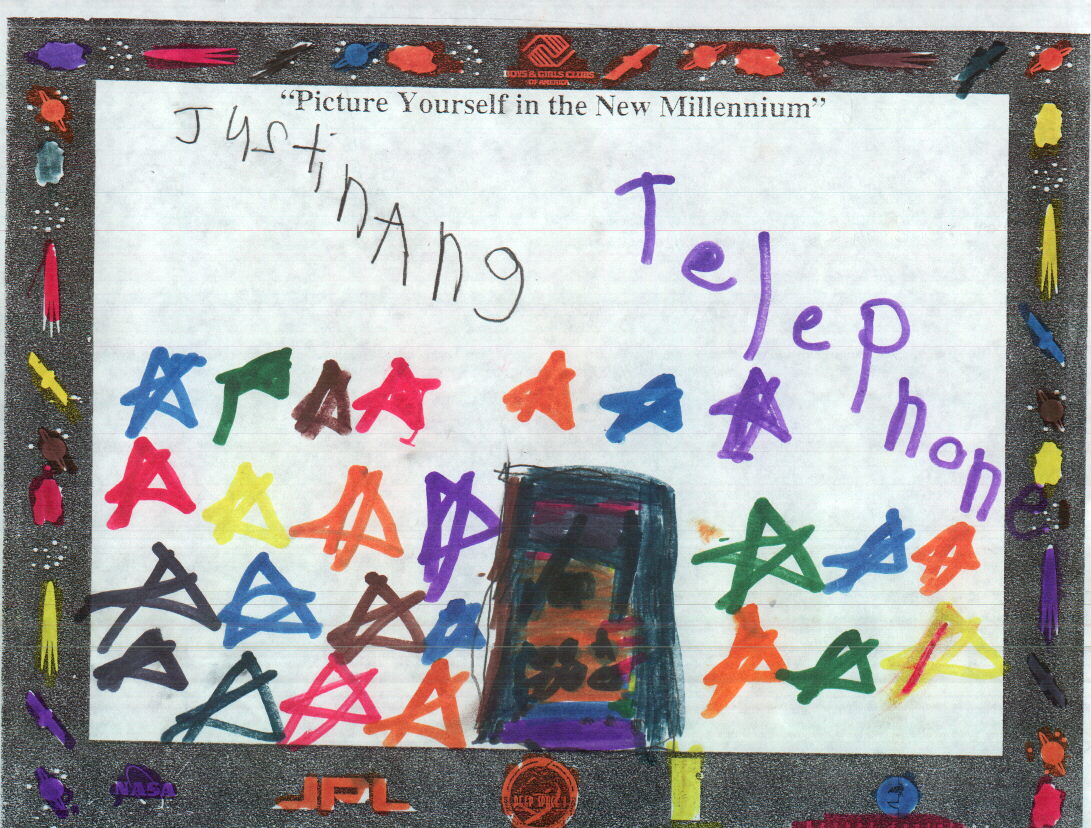 BOYS & GIRLS CLUBS
OF AMERICA
“Picture Yourself in the New Millennium”
JustinAng
Telephone
NASA
JPL